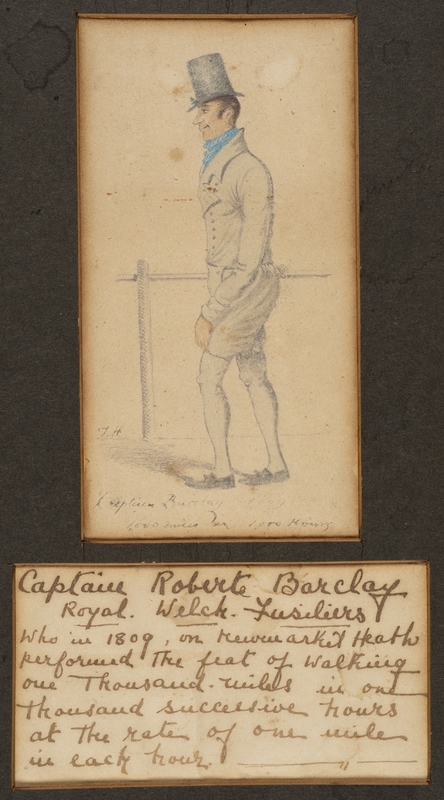 J.H
Captain Barclay
1,000 miles in 1,000 Hours
Captain Roberte Barclay
Royal. Welch. Fusiliers
Who in 1809, on Newmarket Heath
performed the feat of Walking
one Thousand-miles in one
thousand successive hours
at the rate of one mile
in each hour.